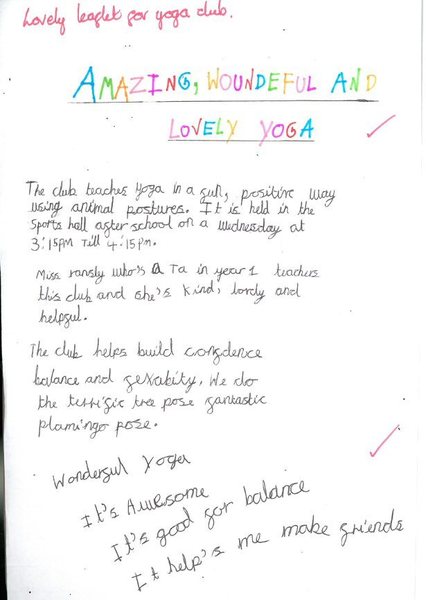 Lovely leaflet for yoga club.
AMAZING, WOUNDEFUL AND
LOVELY YOGA
The club teaches Yoga in a fun, positive way
using animal postures. It is held in the
sports hall after school on a wednesday at
3:15pm Till 4:15pm.
Miss ransly who's a Ta in year 1 teachers
this club and she's kind, lovely and
helpful.
The club helps build confdence
balance and flexabity, We do
the terrific tree pose fantastic
plamingo pose.
Wonderful Yoga
It's Awesome
It's good for balance
It help's me make friends